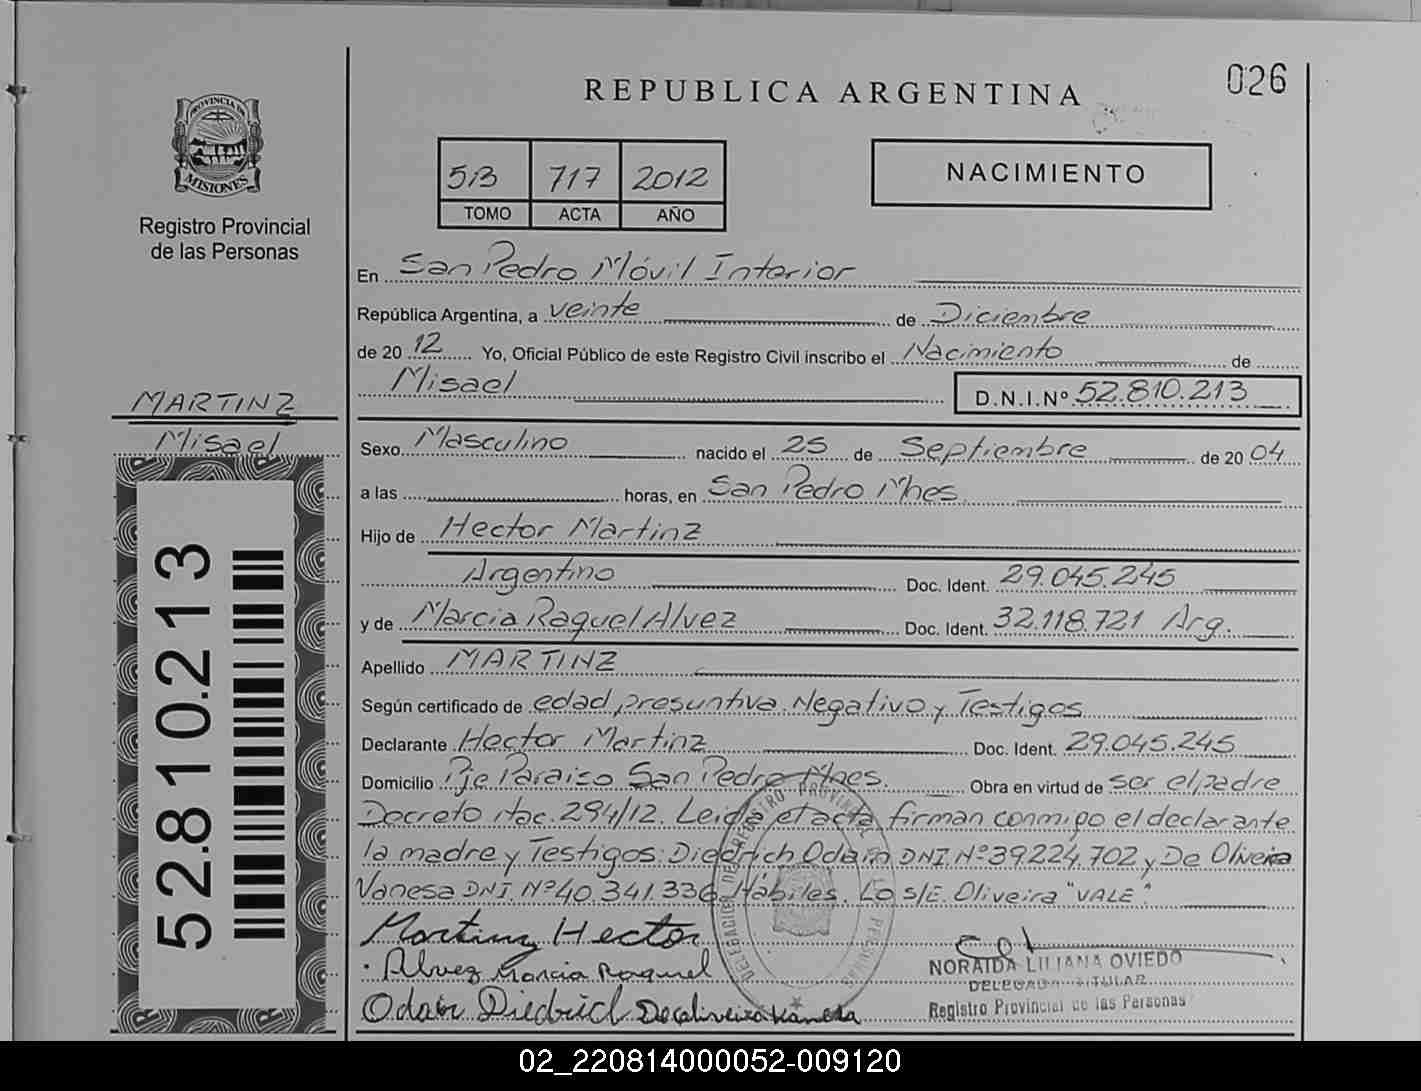 026
REPUBLICA ARGENTINA
PROVINCIA DE
MISIONES
Registro Provincial
de las Personas
5/3 717 2012
TOMO ACTA AÑO
NACIMIENTO
En San Pedro Móvil Interior
República Argentina, a veinte de Diciembre
de 2012 Yo, Oficial Público de este Registro Civil inscribo el Nacimiento de
Misael D.N.I.Nº 52.810.213
MARTINZ
Misael
52.810.213
Sexo Masculino nacido el 25 de Septiembre de 2004
a las horas, en San Pedro Mnes.
Hijo de Hector Martinz
Argentino Doc. Ident. 29.045.245
y de Marcia Raquel Alvez Doc. Ident. 32.118.721 Arg.
Apellido MARTINZ
Según certificado de edad presuntiva Negativo y Testigos
Declarante Hector Martinz Doc. Ident. 29.045.245
Domicilio Pje Paraiso San Pedro Mnes. Obra en virtud de ser el padre
Decreto Nac. 294/12. Leida el acta firman conmigo el declarante
la madre y Testigos: Diedrich Odair DNI.Nº39.224.702 y De Oliveira
Vanesa DNI.Nº40.341.336 Hábiles. Lo S/E. Oliveira "VALE".
Martinz Hector
Alvez Marcia Raquel
Odair Diedrich De oliveira Vanesa
DELEGACION DE REGISTRO PROVINCIAL PERSONAS
NORAIDA LILIANA OVIEDO
DELEGADA TITULAR
Registro Provincial de las Personas
02_220814000052-009120